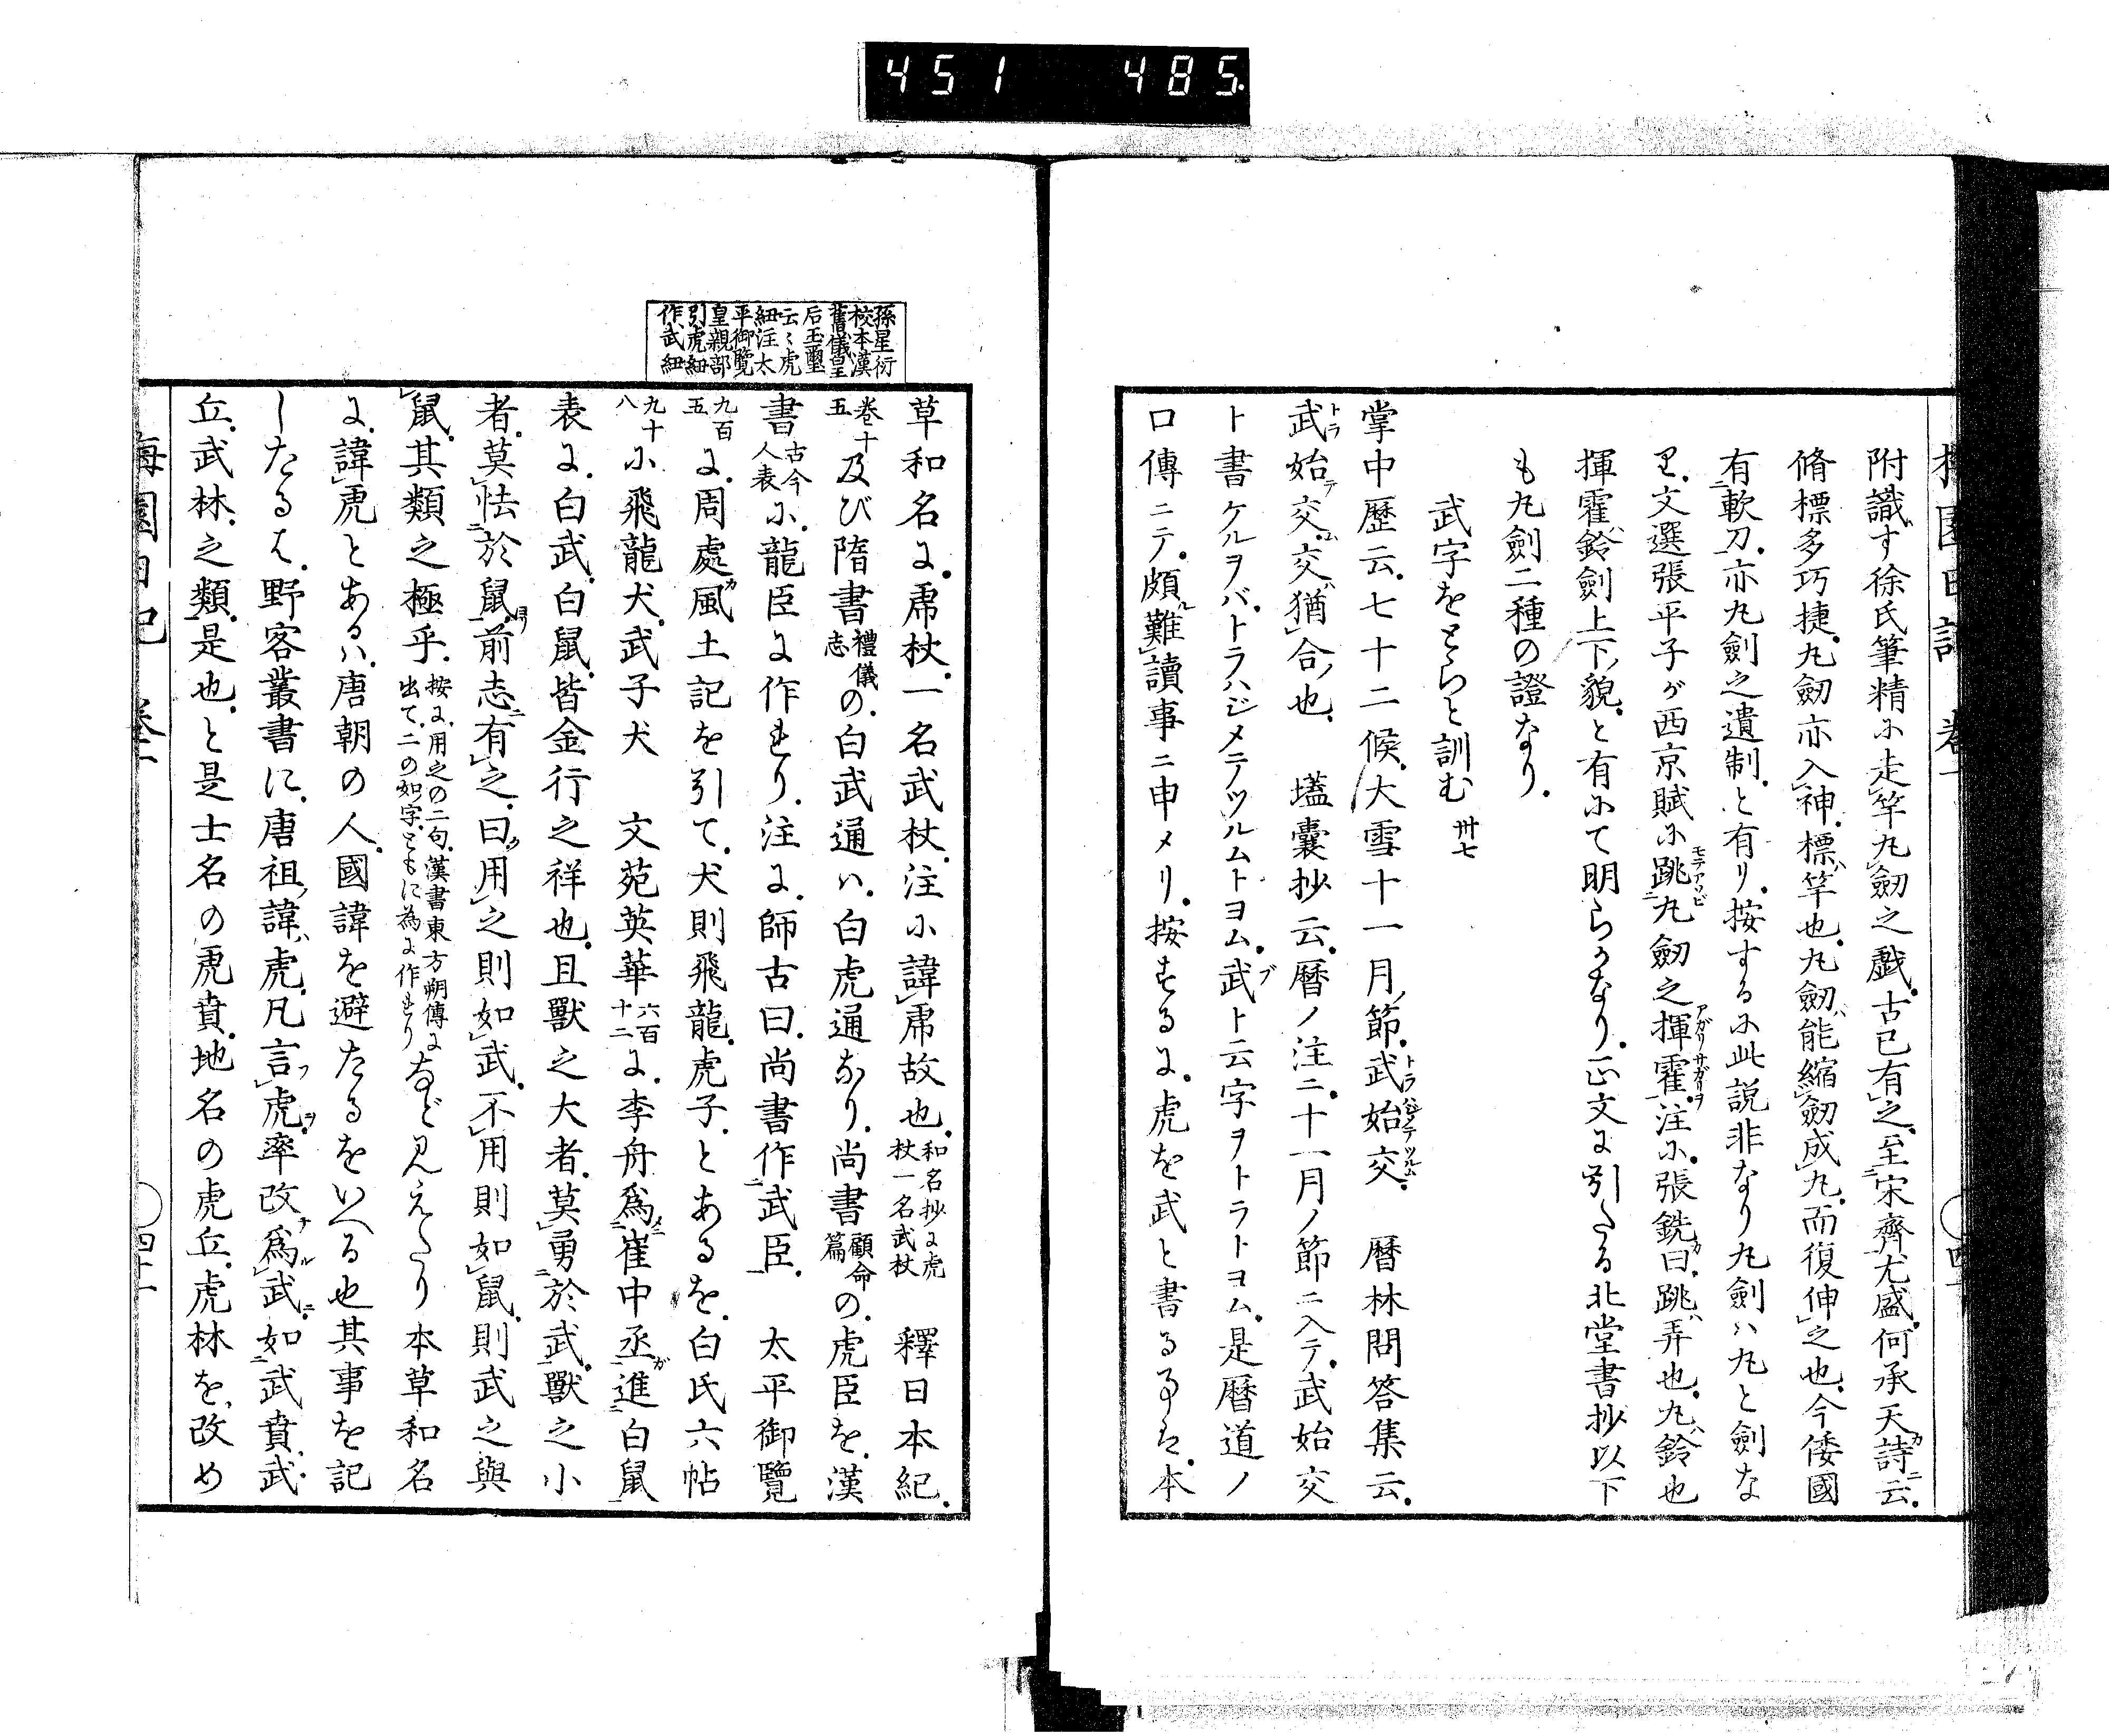 451 485
附識す徐氏筆精ニ走竿丸劔之戲古已有之至宋齊尤盛何承天詩云
脩標多巧捷丸劔亦入神標竿也丸劔能縮劔成丸而復伸之也今倭國
有軟刀亦丸劍之遺制と有り按するに此説非なり丸劍ハ丸と劍な
り文選張平子ガ西京賦に跳丸劔之揮霍注に張銑曰跳弄也丸鈴也
揮霍鈴劍上下貌と有にて明らかなり正文に引たる北堂書抄以下
も丸劍二種の證なり
武字をとらと訓む 卅七
掌中歴云七十二候大雪十一月節武始交 暦林問答集云
武始交交猶合也 壒囊抄云暦ノ注ニ十一月ノ節ニ入テ武始交
ト書ケルヲバトラハジメテツルムトヨム武ト云字ヲトラトヨム是暦道ノ
口傳ニテ頗難讀事ニ申メリ按ずるに虎を武と書る事は本
孫星衍
校本漢
舊儀皇
后玉璽
云々虎
紐注太
平御覽
皇親部
引虎紐
作武紐
草和名に虎杖一名武杖注に諱虎故也和名抄に虎杖一名武杖 釋日本紀
卷十五及び隋書禮儀志の白武通ハ白虎通なり尚書顧命篇の虎臣を漢
書古今人表に龍臣に作れり注に師古曰尚書作武臣 太平御覽
九百五に周處風土記を引て犬則飛龍虎子とあるを白氏六帖
九十八に飛龍犬武子犬 文苑英華六百十二に李舟爲崔中丞進白鼠
表に白武白鼠皆金行之祥也且獸之大者莫勇於武獸之小
者莫怯於鼠前志有之曰用之則如武不用則如鼠則武之與
鼠其類之極乎按に用之の二句漢書東方朔傳に出て二の如字ともに為に作れりなどみえたり本草和名
に諱虎とあるハ唐朝の人國諱を避たるをいへる也其事を記
したるは野客叢書に唐祖諱虎凡言虎率改爲武如武賁武
丘武林之類是也と是士名の虎賁地名の虎丘虎林を改め
梅園日記 卷一